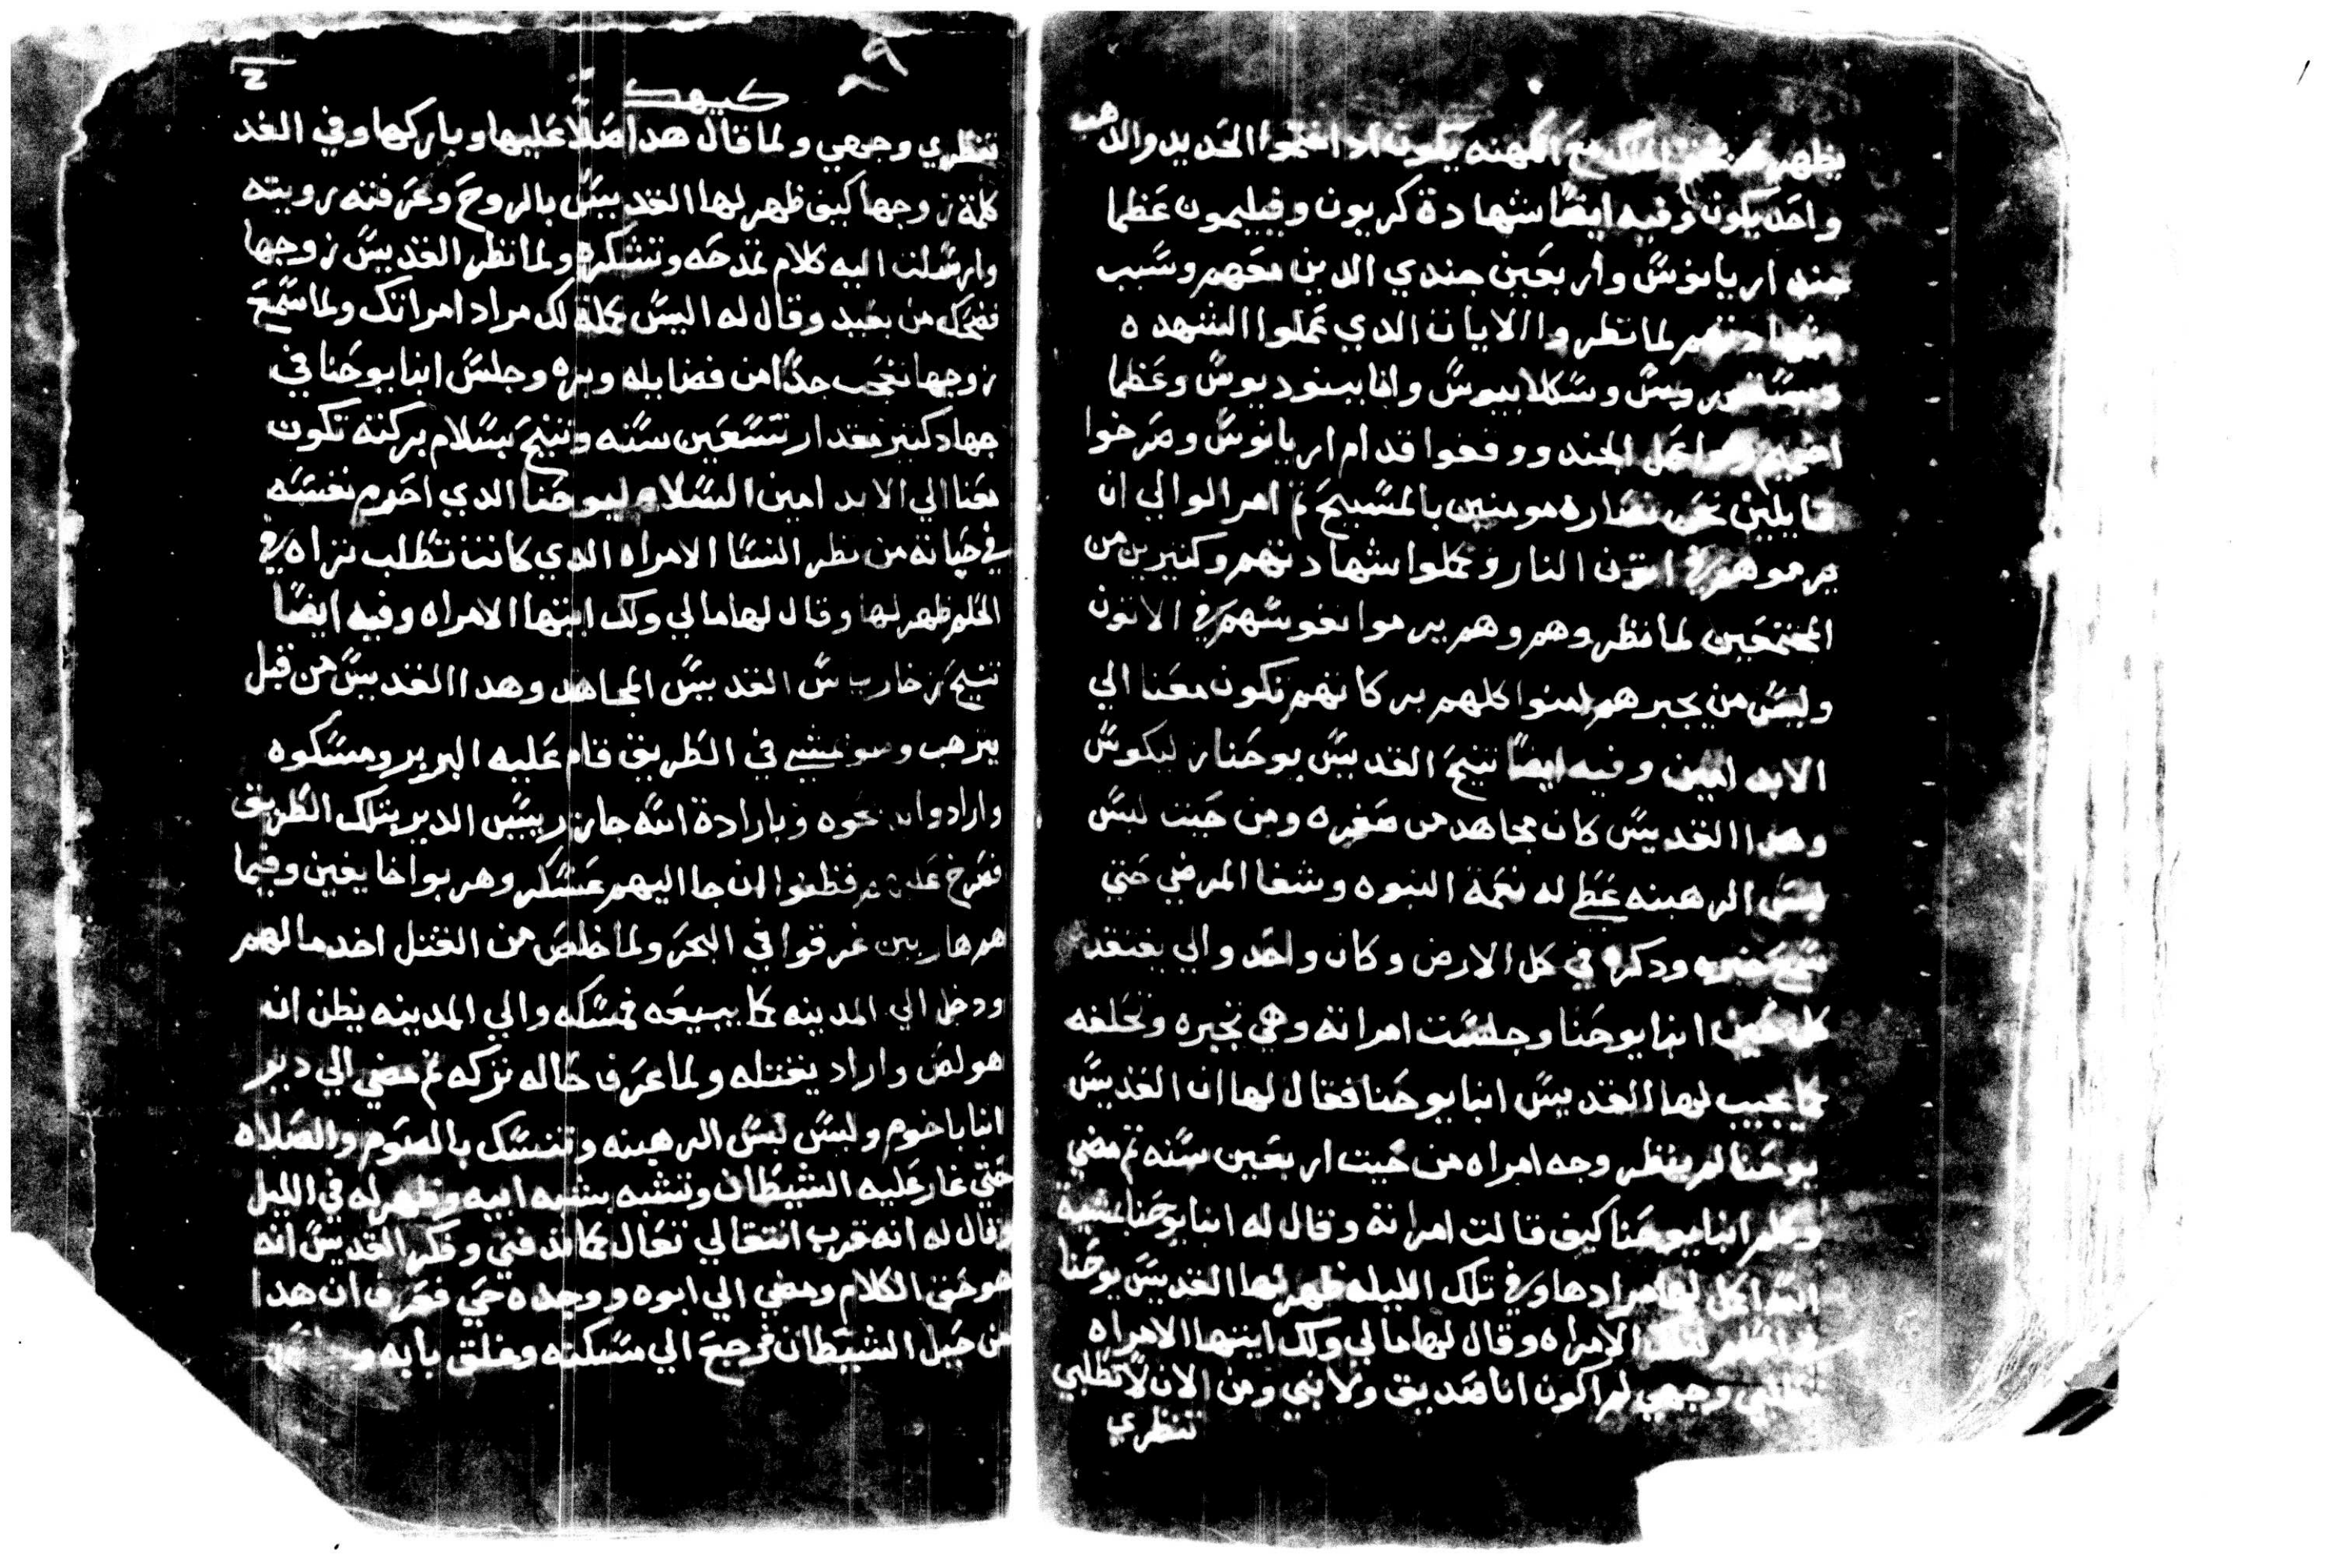 يظهر الملك مع الكهنه يكون اد اختموا الحديد والدهب
واحد يكون وفيه ايضًا شهادة كريون وفيليمون عظما
جند اريانوس واربعين جندي الدين معهم وسبب
لما نظروا الايات الدي عملوا الشهده
وسكلابيوس وانبا بينوديوس وعظما
اخميم الجند ووقفوا قدام اريانوس وصرخوا
قايلين نحن نصاره مومنين بالمسيح تم امر الوالي ان
يرموهم في اتون النار وكملوا شهادتهم وكتيرين من
المجتمعين لما نظروهم وهم يرموا نفوسهم في الاتون
وليس من يجبرهم امنوا كلهم بركاتهم تكون معنا الي
الابد امين وفيه ايضًا تنيح القديس يوحنا ليكوس
وهدا القديس كان مجاهد من صغره ومن حيت لبس
لبس الرهبنه عطي له نعمة النبوه وشفا المرضي حتي
ودكره في كل الارض وكان واحد والي يفتقد
كل حين انبا يوحنا وجلست امراته وهي تجبره وتحلفه
كما يجيب لها القديس انبا يوحنا فقال لها ان القديس
يوحنا لم ينظر وجه امراه من حيت اربعين سنه تم مضي
وكلم انبا يوحنا كيف قالت امراته وقال له انبا يوحنا
الله اكمل لها مرادها وفي تلك الليله ظهر لها القديس يوحنا
في الحلم لتلك الامراه وقال لها مالي ولك ايتها الامراه
وجهي لم اكون انا صديق ولا نبي ومن الان لا تطلبي
تنظري
كيهك
تنظري وجهي ولما قال هدا صلا عليها وباركها وفي الغد
كلمة زوجها كيف ظهر لها القديس بالروح وعرفته رويته
وارسلت اليه كلام تمدحه وتشكره ولما نظر القديس زوجها
فضحك من بعيد وقال له اليس كملة لك مراد امراتك ولما سمع
زوجها تعجب جدًا من فضايله وبره وجلس انبا يوحنا في
جهاد كتير مقدار تسعين سنه وتنيح بسلام بركته تكون
معنا الي الابد امين السلام ليوحنا الدي احرم نفسه
في حياته من نظر النسا الامراه الدي كانت تطلب تراه في
الحلم ظهر لها وقال لها مالي ولك ايتها الامراه وفيه ايضًا
تنيح القديس المجاهد وهدا القديس من قبل
يترهب وهو يمشي في الطريق قام عليه البربر ومسكوه
وارادوا يدبحوه وبارادة الله جاز رييس الدير بتلك الطريق
فصرخ عليهم فظنوا ان جا اليهم عسكر وهربوا خايفين وفيما
هم هاربين غرقوا في البحر ولما خلص من القتل اخد مالهم
ودخل الي المدينه كما يبيعه فمسكه والي المدينه يظن انه
هو لص واراد يقتله ولما عرف حاله تركه تم مضي الي دير
انبا باخوم ولبس لبس الرهبنه وتنسك بالصوم والصلاه
حتي غار عليه الشيطان وتشبه بشبه ابيه وظهر له في الليل
وقال له انه قرب انتقالي تعال كما تدفني وفكر القديس انه
هو حق الكلام ومضي الي ابوه ووجده حي فعرف ان هدا
من حيل الشيطان فرجع الي مسكنه وغلق بابه